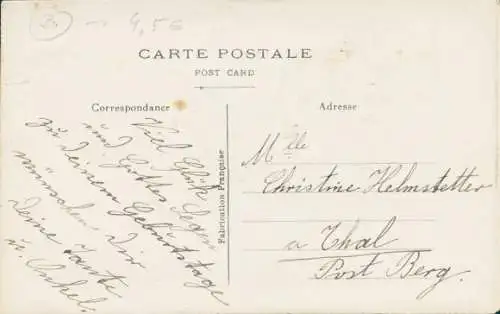 3.- 4,50
CARTE POSTALE
POST CARD
Correspondance
Adresse
Viel Glück
und Gottes Segen
zu deinem Geburtstage
wünschen Dir
Deine Tante
u. Onkel.
Fabrication Française
Mlle
Christine Helmstetter
a Thal
Post Berg.